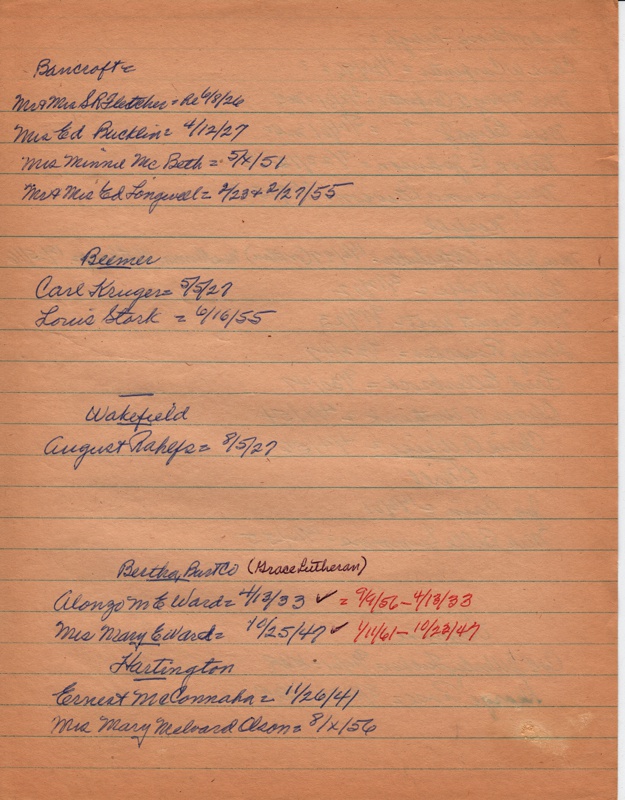 Bancroft =
Mr & Mrs S R Fletcher = Re 6/8/26
Mrs Ed Bucklin = 4/12/27
Mrs Minnie McBeth = 5/x/51
Mr & Mrs Ed Longwell = 2/23 & 2/27/55
Beemer
Carl Kruger = 5/5/27
Louis Stork = 6/16/55
Wakefield
August = 8/5/27
Bertha, Burt Co (Grace Lutheran)
Alonzo M E Ward = 4/13/33 ✓ = 9/9/56 - 4/13/33
Mrs Mary E Ward = 10/25/47 ✓ 1/11/61 - 10/23/47
Hartington
Ernest McConnaha = 11/26/41
Mrs Mary Olson = 8/x/56